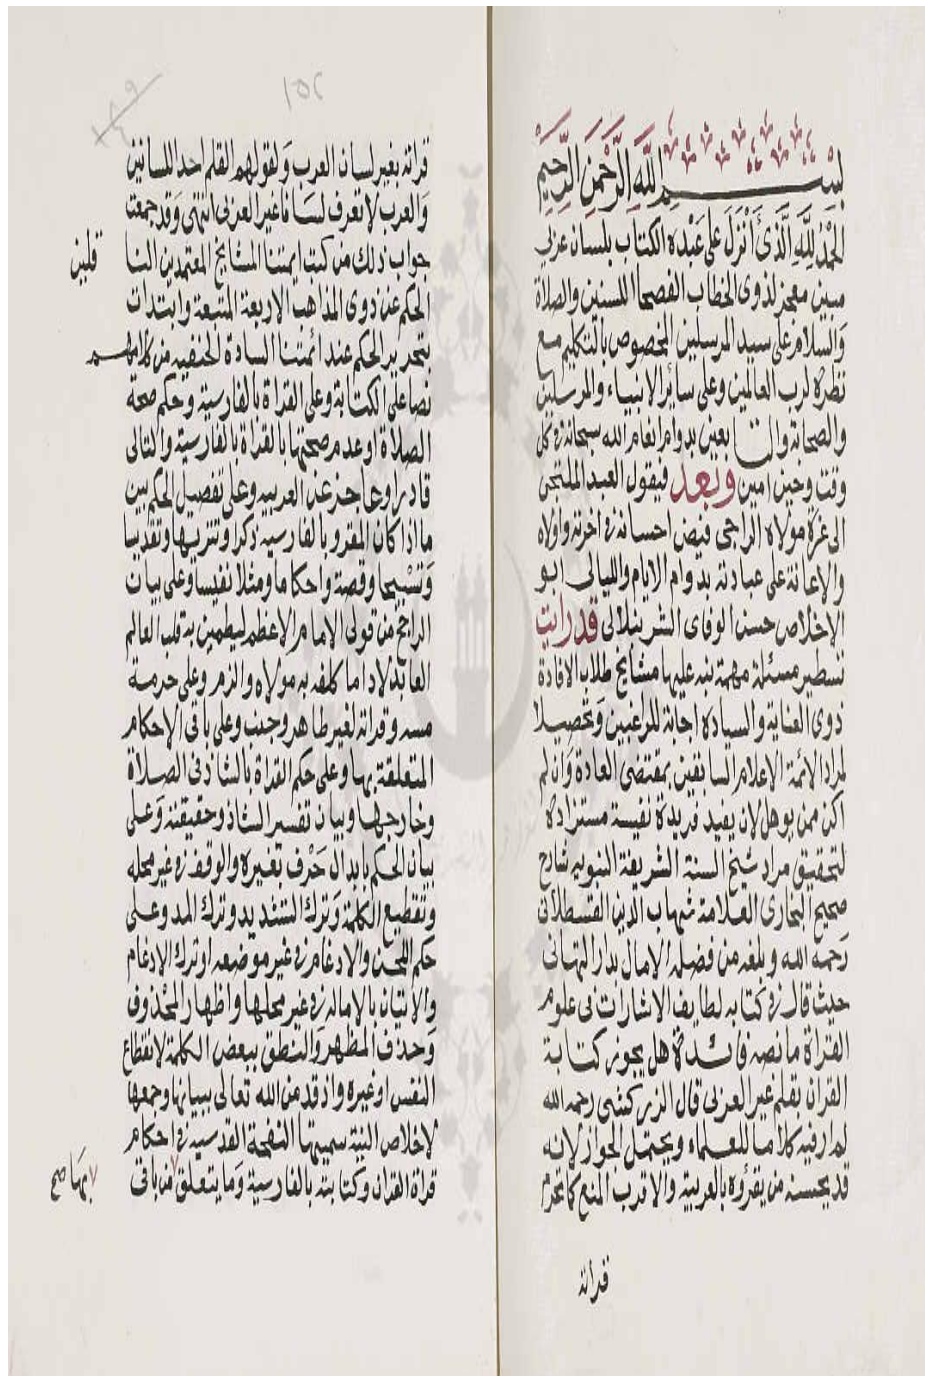 بسم الله الرحمن الرحيم
الحمد لله الذي أنزل على عبده الكتاب بلسان عربي
مبين معجز لذوي الخطاب الفصحا اللسنين والصلاة
والسلام على سيد المرسلين المخصوص بالتكليم مع
نظره لرب العالمين وعلى سائر الانبياء والمرسلين
والصحابة والتابعين بدوام انعام الله سبحانه في كل
وقت وحين امين وبعد فيقول العبد الملتجئ
الى عزة مولاه الراجي فيض احسانه في اخرته واولاه
والاعانة على عبادته بدوام الايام والليالي ابو
الاخلاص حسن الوفاى الشرنبلالي قد رايت
تسطير مسئلة مهمة نبه عليها مشايخ طلاب الافادة
ذوى العناية والسيادة اجابة للراغبين وتحصيلا
لمراد الائمة الاعلام السابقين بمقتضى العادة وان لم
اكن ممن يوهل لان يفيد فريدة نفيسة مستزادة
لتحقيق مراد شيخ السنة الشريفة النبوية شارح
صحيح البخارى العلامة شهاب الدين القسطلانى
رحمه الله وبلغه من فضله الامال بدار التهانى
حيث قال في كتابه لطايف الاشارات في علوم
القراة ما نصه فائدة هل يجوز كتابة
القران بقلم غير العربى قال الزركشى رحمه الله
لم ار فيه كلاما للعلماء ويحتمل الجواز لانه
قد يحسنه من يقرؤه بالعربية والاقرب المنع كما تحرم
قراته
١٥٢
قراته بغير لسان العرب ولقولهم القلم احد اللسانين
والعرب لا تعرف لسانا غير العربى انتهى وقد جمعت
جواب ذلك من كتب ايمتنا المشايخ المعتمدين
ناقلين
الحكم عن ذوى المذاهب الاربعة المتبعة وابتدات
بتحرير الحكم عند ائمتنا السادة الحنفيه من كلامهم
نصا على الكتابة وعلى القراة بالفارسية وحكم صحة
الصلاة او عدم صحتها بالقراة بالفارسية والتالى
قادر او عاجز عن العربيه وعلى تفصيل الحكم بين
ما اذا كان المقرو بالفارسيه ذكرا وتنزيها وتقديسا
وتسبيحا وقصة واحكاما ومثلا نفيسا وعلى بيان
الراجح من قول الامام الاعظم ليطمين به قلب العالم
العابد لاداما كلفه به مولاه والزم وعلى حرمة
مسه وقراته لغير طاهر وجنب وعلى باقى الاحكام
المتعلقة بها وعلى حكم القراة بالشاذ فى الصلاة
وخارجها وبيان تفسير الشاذ وحقيقته وعلى
بيان الحكم بابدال حرف بغيره والوقف في غير محله
وتقطيع الكلمة وترك التشديد وترك المد وعلى
حكم اللحن والادغام في غير موضعه او ترك الادغام
والاتيان بالاماله في غير محلها واظهار المحذوف
وحذف المظهر والنطق ببعض الكلمة لانقطاع
النفس او غيره واذ قد من الله تعالى ببيانها وجمعها
لاخلاص النية سميتها النفحة القدسيه في احكام
قراة القران وكتابته بالفارسية وما يتعلق من باقى
بها صح